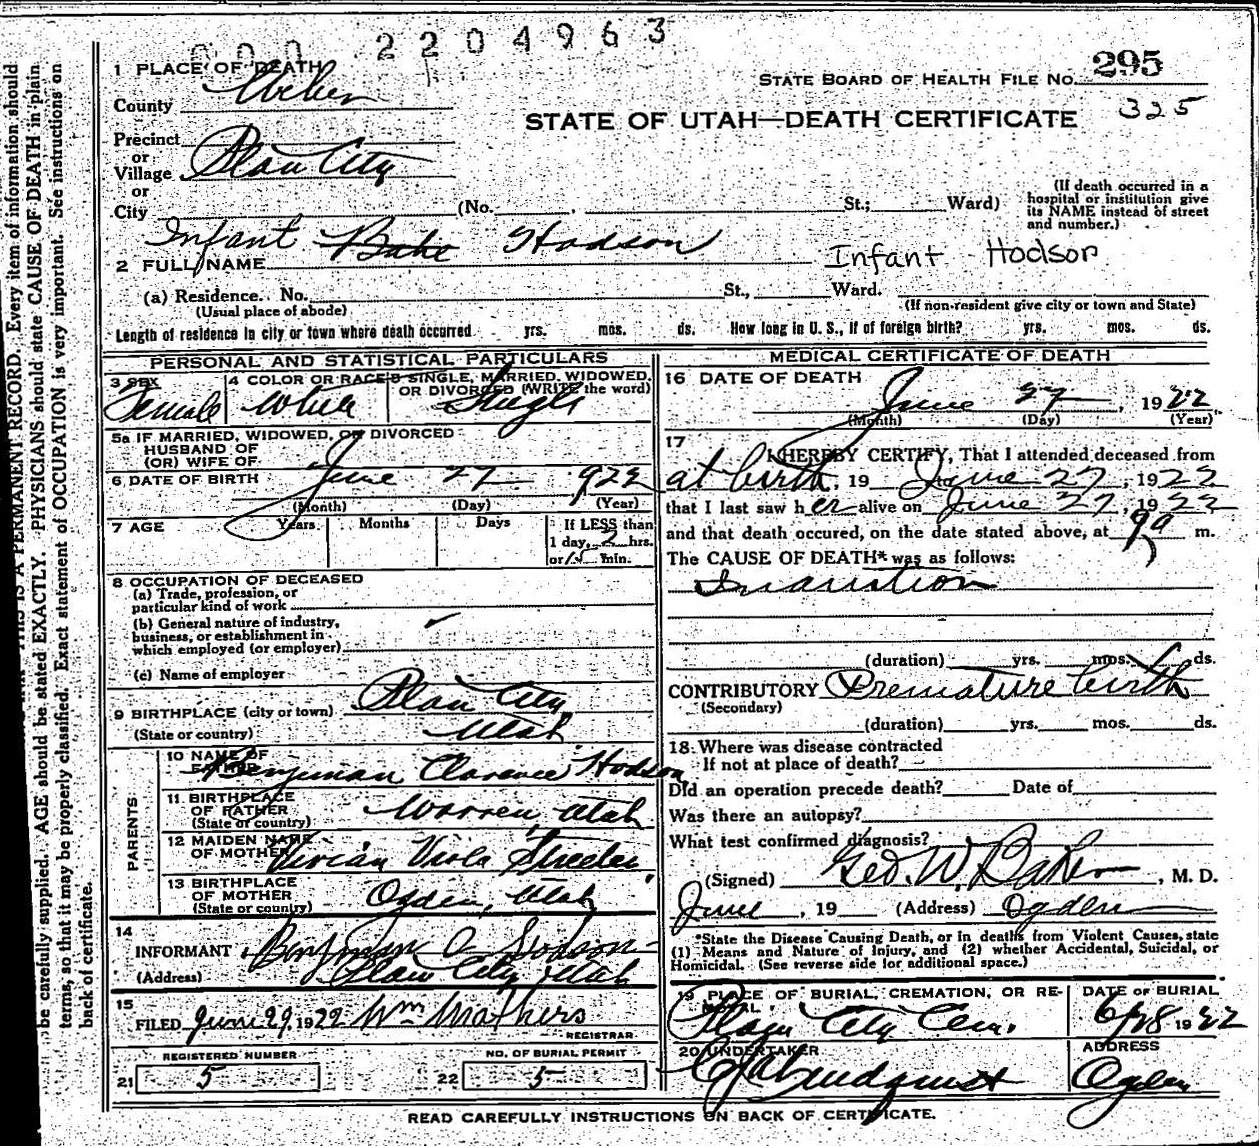 000 2204963
1 PLACE OF DEATH
County Weber
STATE BOARD OF HEALTH FILE No. 295
325
STATE OF UTAH—DEATH CERTIFICATE
Precinct
or
Village Plain City
or
City (No. , St.; Ward)
(If death occurred in a hospital or institution give its NAME instead of street and number.)
2 FULL NAME Infant Babe Hodson
Infant Hodson
(a) Residence. No. St., Ward.
(Usual place of abode)
(If non-resident give city or town and State)
Length of residence in city or town where death occurred yrs. mos. ds. How long in U. S., if of foreign birth? yrs. mos. ds.
PERSONAL AND STATISTICAL PARTICULARS
3 SEX Female
4 COLOR OR RACE White
5 SINGLE, MARRIED, WIDOWED, OR DIVORCED (WRITE the word) Single
5a IF MARRIED, WIDOWED, OR DIVORCED
HUSBAND OF
(OR) WIFE OF
6 DATE OF BIRTH June 27 922
(Month) (Day) (Year)
7 AGE Years Months Days If LESS than
1 day, 2 hrs.
or 15 min.
8 OCCUPATION OF DECEASED
(a) Trade, profession, or
particular kind of work
(b) General nature of industry,
business, or establishment in
which employed (or employer)
(c) Name of employer
9 BIRTHPLACE (city or town) Plain City
(State or country) Utah
PARENTS
10 NAME OF FATHER Benjiman Clarence Hodson
11 BIRTHPLACE OF FATHER (State or country) Warren, Utah
12 MAIDEN NAME OF MOTHER Vivian Viola
13 BIRTHPLACE OF MOTHER (State or country) Ogden, Utah
14
INFORMANT Benjman C Hodson
(Address) Plain City, Utah
15
FILED June 29, 1922 Wm Mathers
REGISTRAR
REGISTERED NUMBER
21 5
NO. OF BURIAL PERMIT
22 5
MEDICAL CERTIFICATE OF DEATH
16 DATE OF DEATH June 27, 1922
(Month) (Day) (Year)
17
I HEREBY CERTIFY, That I attended deceased from
at birth, 19 June 27, 1922
that I last saw her alive on June 27, 1922
and that death occured, on the date stated above, at 9 a m.
The CAUSE OF DEATH* was as follows:
Inanition
(duration) yrs. mos. ds.
CONTRIBUTORY Premature birth
(Secondary)
(duration) yrs. mos. ds.
18. Where was disease contracted
If not at place of death?
Did an operation precede death? Date of
Was there an autopsy?
What test confirmed diagnosis?
(Signed) Geo. W. Baker, M. D.
June, 19 (Address) Ogden
*State the Disease Causing Death, or in deaths from Violent Causes, state
(1) Means and Nature of Injury, and (2) whether Accidental, Suicidal, or
Homicidal. (See reverse side for additional space.)
19 PLACE OF BURIAL, CREMATION, OR RE-
MOVAL Plain City Cem.
DATE OF BURIAL
6/28 1922
20 UNDERTAKER
Lindquist
ADDRESS
Ogden
READ CAREFULLY INSTRUCTIONS ON BACK OF CERTIFICATE.
THIS IS A PERMANENT RECORD. Every item of information should
be carefully supplied. AGE should be stated EXACTLY. PHYSICIANS should state CAUSE OF DEATH in plain
terms, so that it may be properly classified. Exact statement of OCCUPATION is very important. See instructions on
back of certificate.